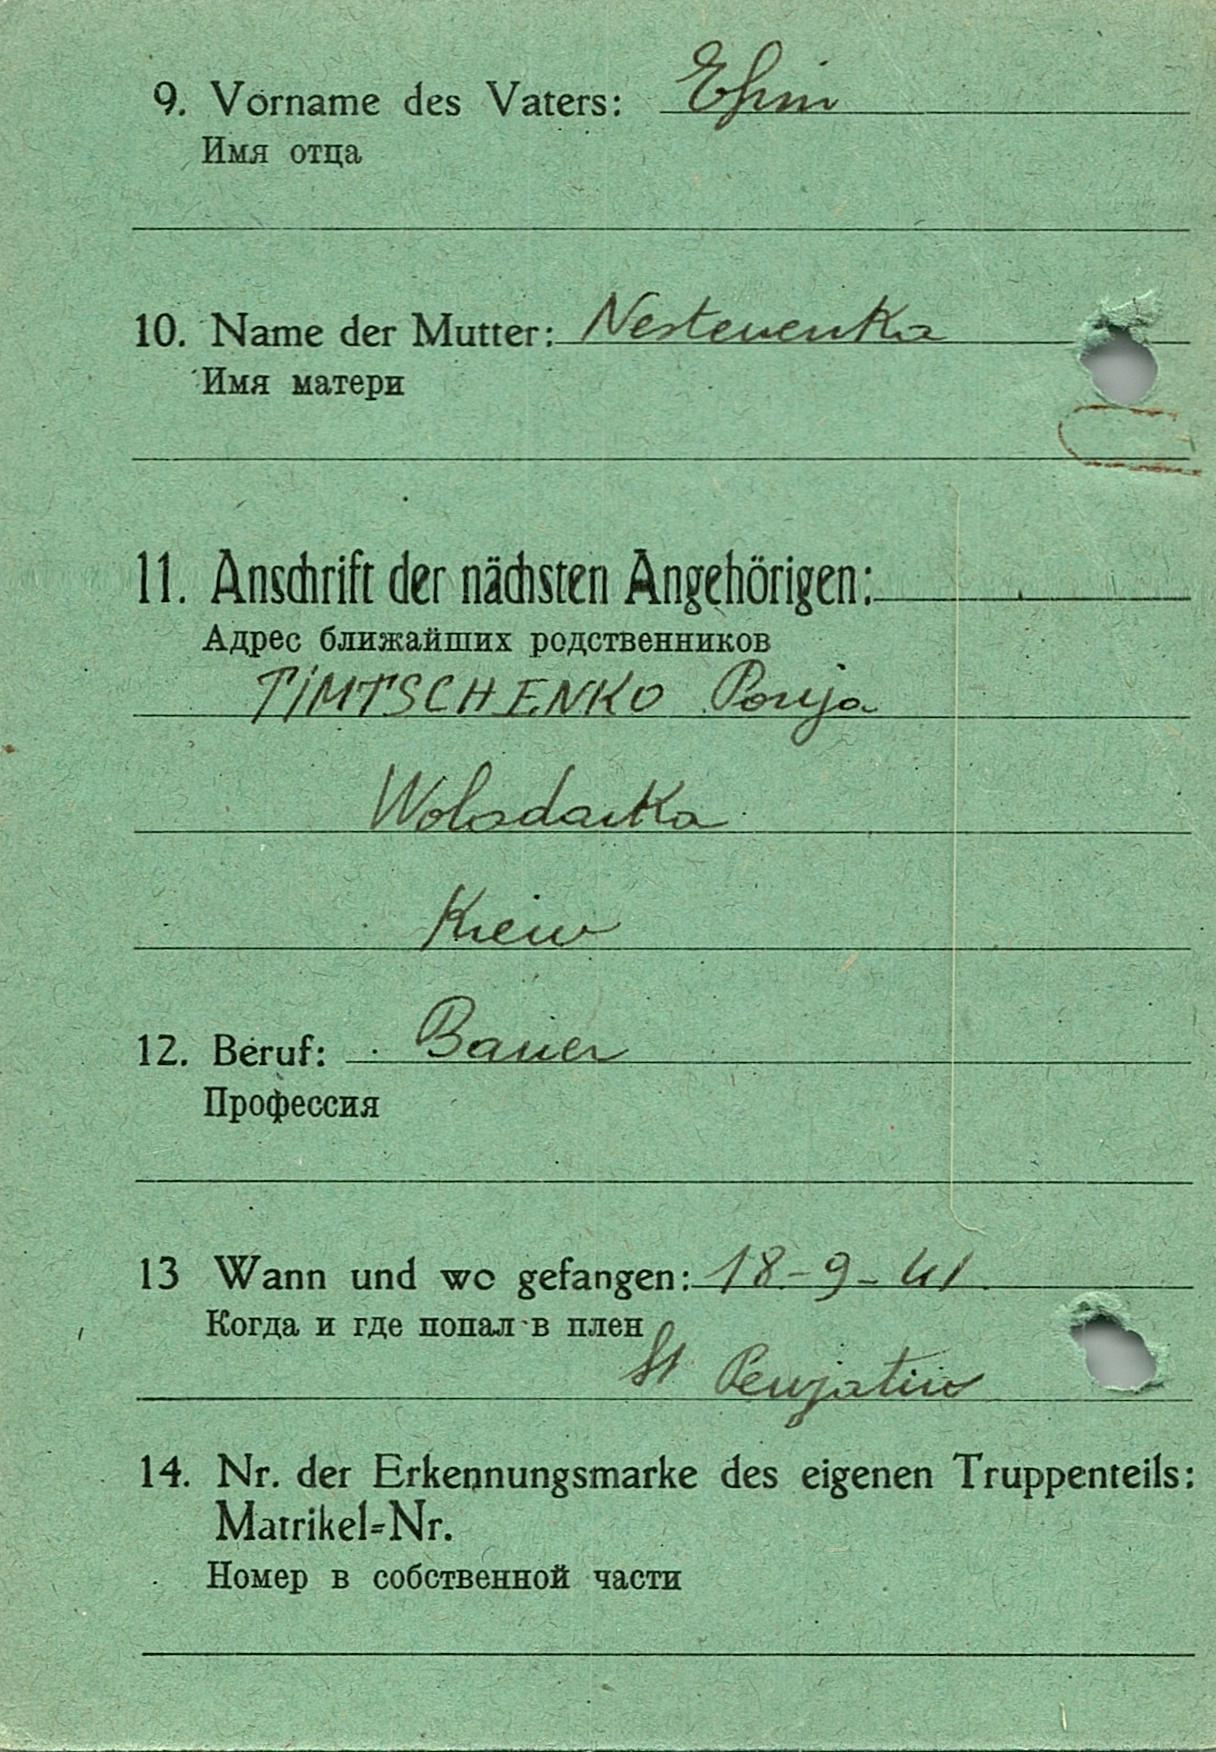 9. Vorname des Vaters: Efim
Имя отца
10. Name der Mutter: Nesterenka
Имя матери
11. Anschrift der nächsten Angehörigen:
Адрес ближайших родственников
TIMTSCHENKO
Wolodarka
Kiew
12. Beruf: Bauer
Профессия
13 Wann und wo gefangen: 18-9-41
Когда и где попал в плен
St
14. Nr. der Erkennungsmarke des eigenen Truppenteils:
Matrikel-Nr.
Номер в собственной части